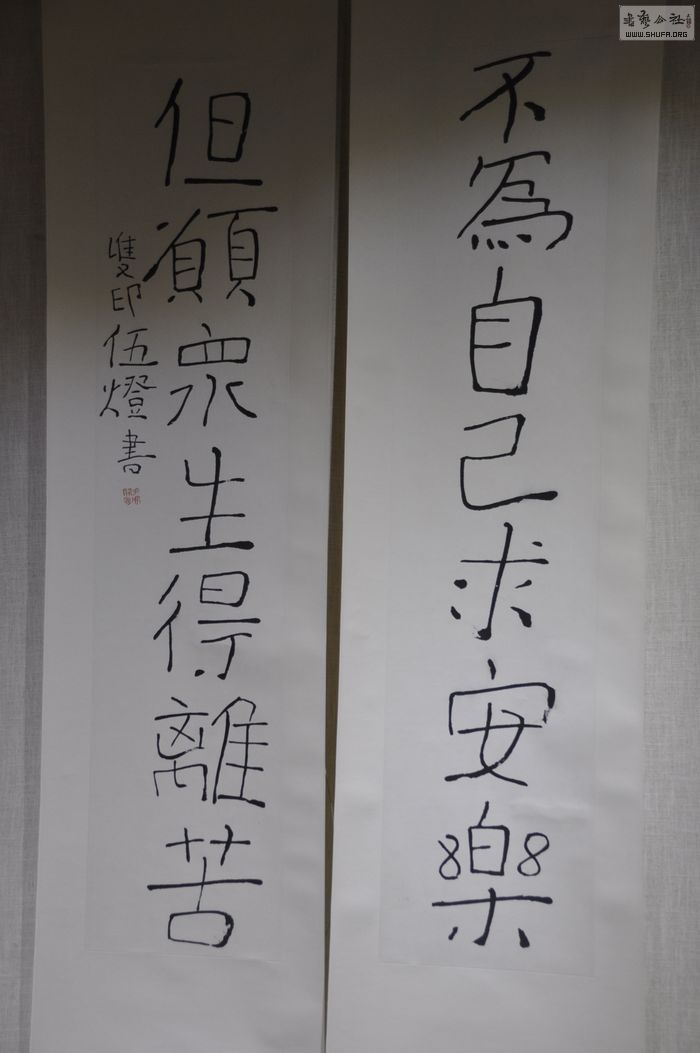 不為自己求安樂
但願眾生得離苦
雙印伍燈書
WWW.SHUFA.ORG